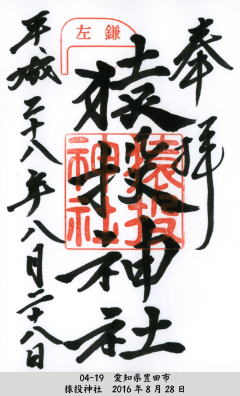 奉拝
左鎌
猿投神社
猿投神社
平成二十八年八月二十八日
04-19 愛知県豊田市
猿投神社 2016年8月28日